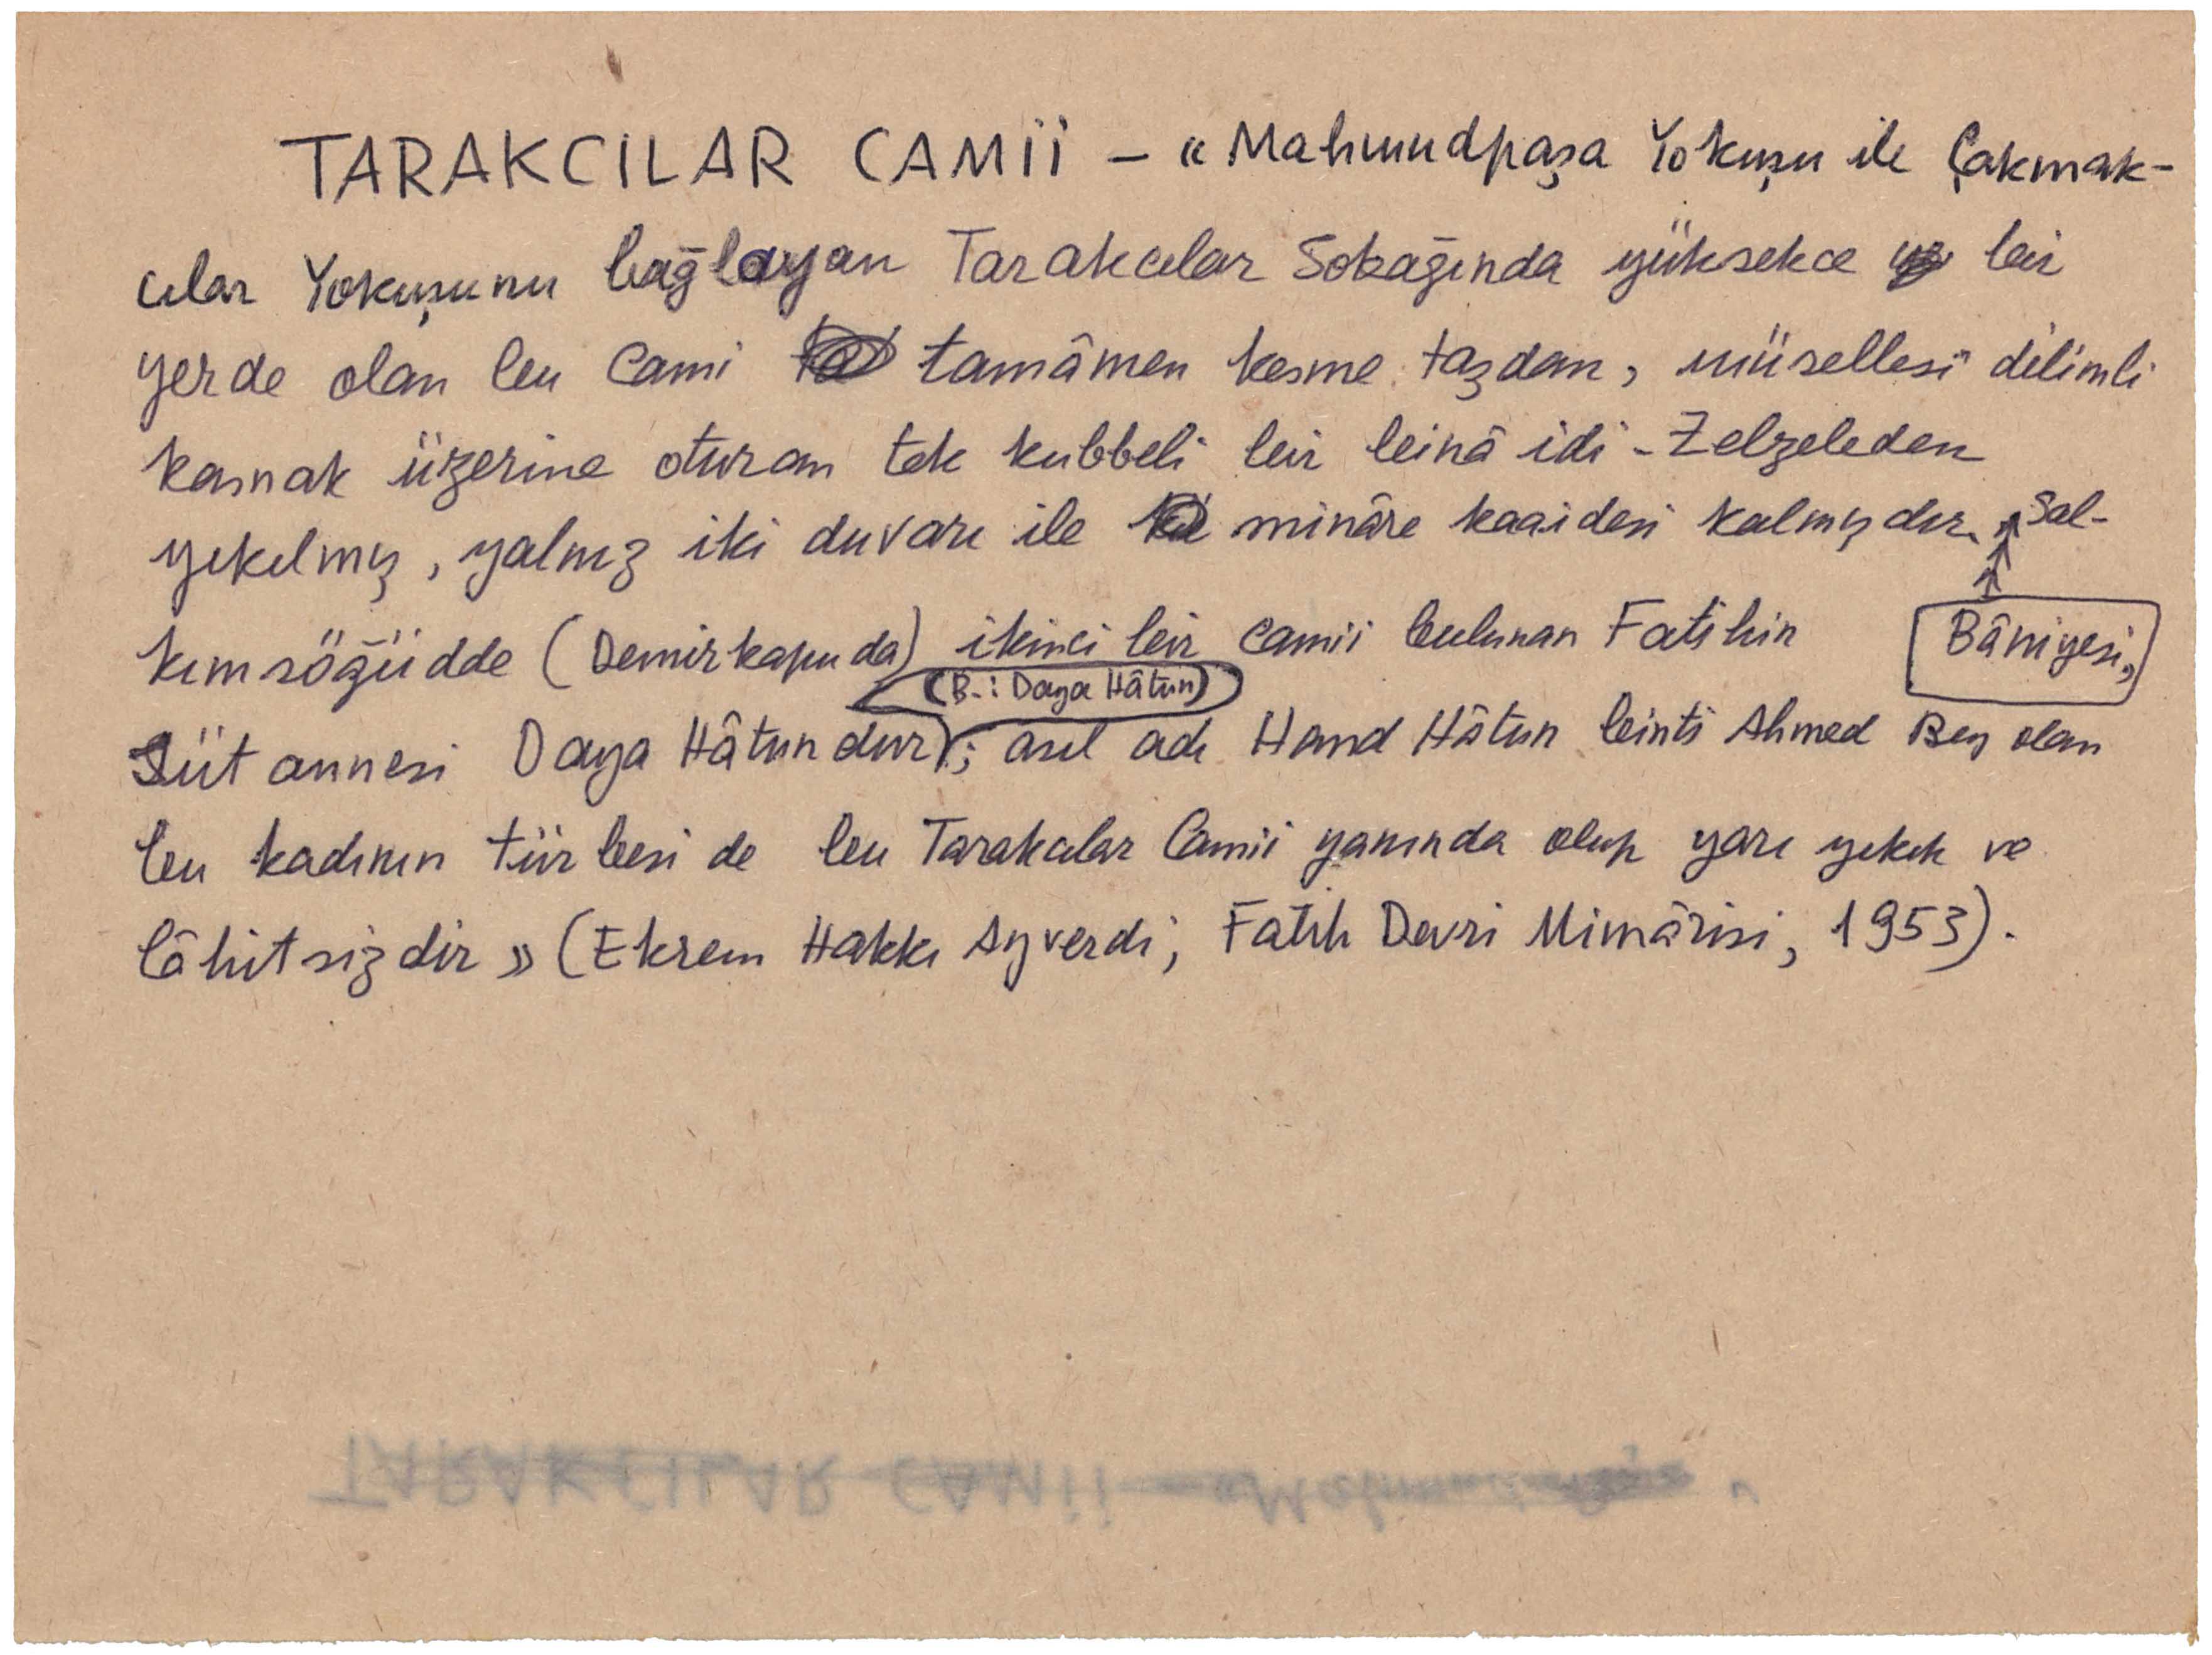 TARAKCILAR CAMİİ – «Mahmudpaşa Yokuşu ile Çakmak-
cılar Yokuşunu bağlayan Tarakcılar Sokağında yüksekce bir
yerde olan bu cami tamâmen kesme taşdan, müsellesî dilimli
kasnak üzerine oturan tek kubbeli bir binâ idi - Zelzeleden
yıkılmış, yalnız iki duvarı ile minâre kaaidesi kalmışdır. Sal-
kımsöğüdde (Demirkapuda) ikinci bir camii bulunan Fatihin
Bâniyesi,
(B.: Daya Hâtun)
Süt annesi Daya Hâtundur; asıl adı Hand Hâtun binti Ahmed Bey olan
bu kadının türbesi de bu Tarakcılar Camii yanında olup yarı yıkık ve
lâhitsizdir» (Ekrem Hakkı Ayverdi, Fatih Devri Mimârisi, 1953).
TARAKCILAR CAMİİ – «Mahmudpaşa